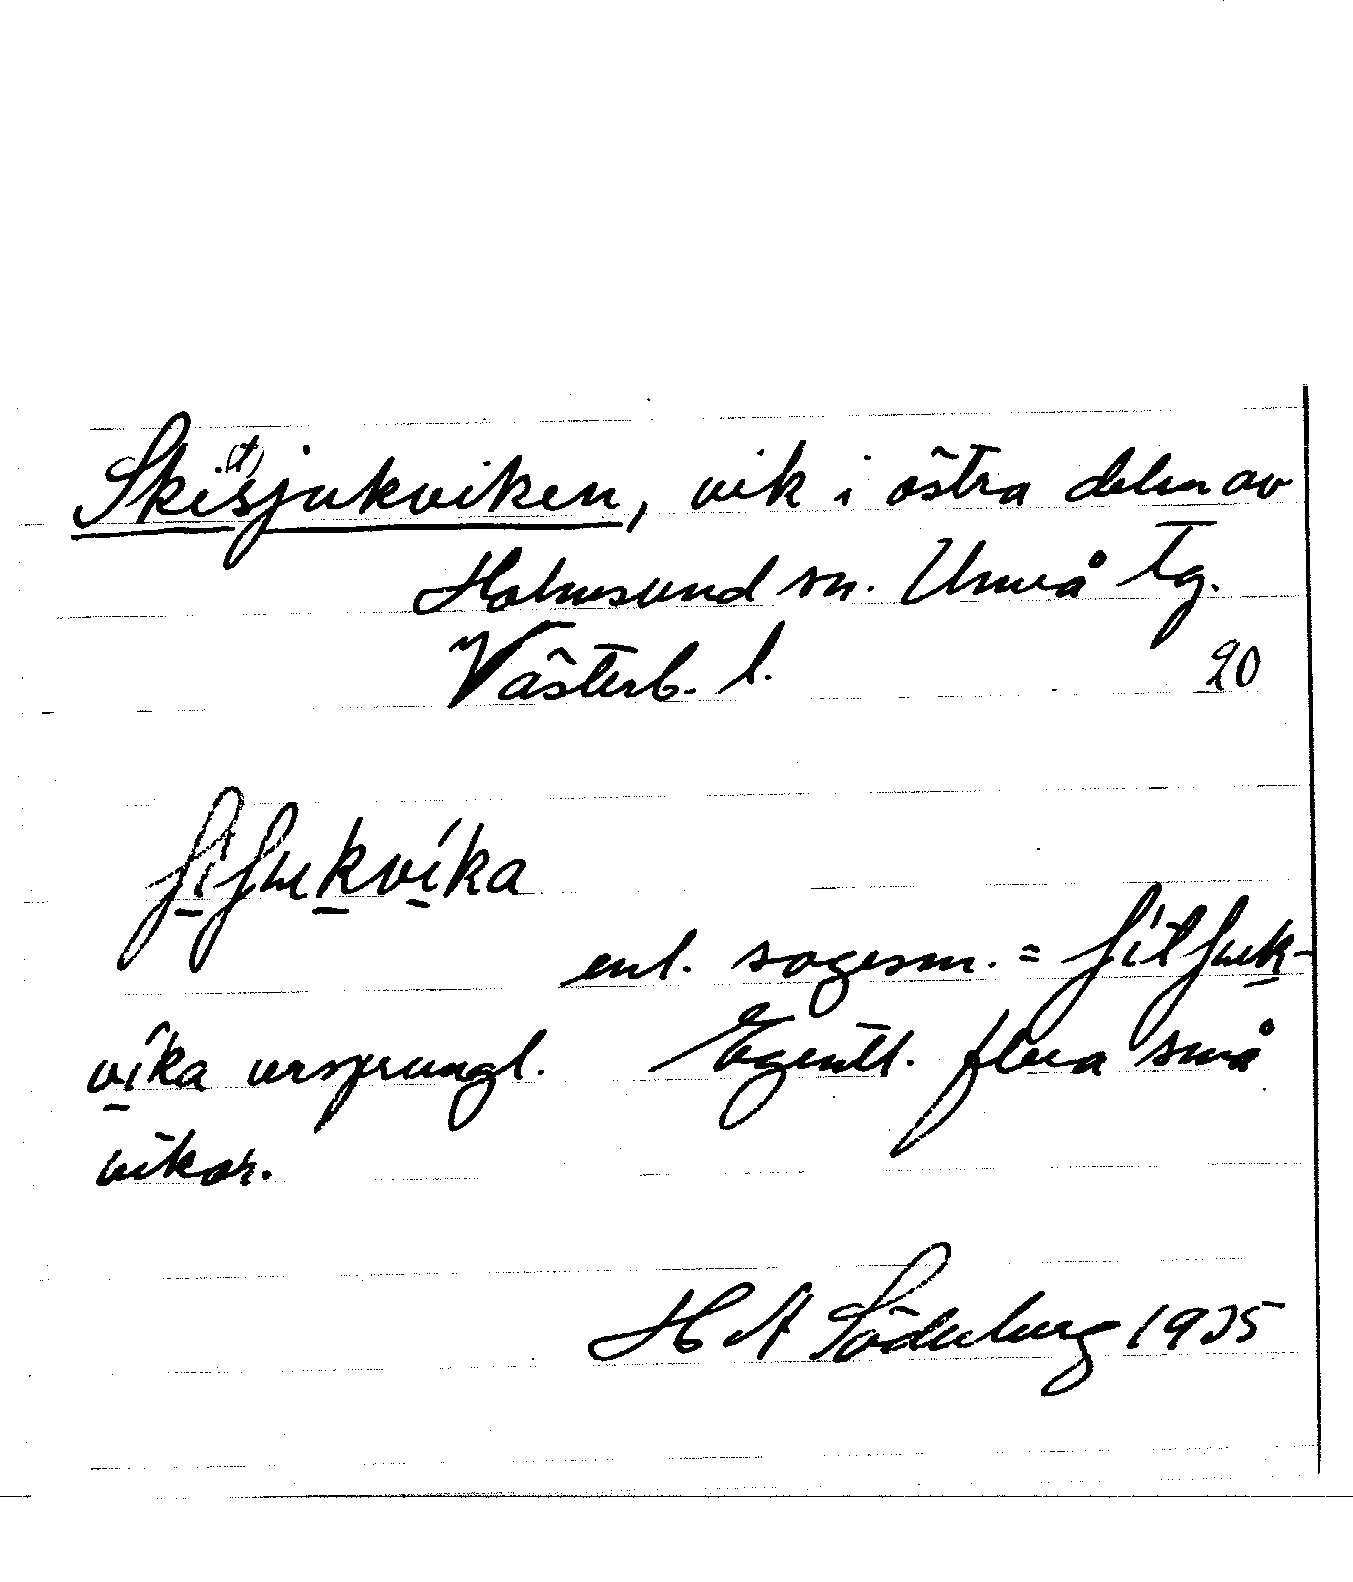 Ski(t)sjukviken, vik i östra delen av
Holmsund sn. Umeå Tg.
Västerb. l. 20
ʃiʃukvíka
enl. sagesm. = ʃítʃuk-
víka ursprungl. Egentl. flera små
vikar.
H A Söderberg 1935